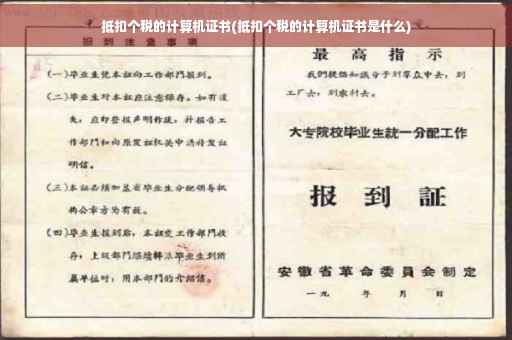 抵扣个税的计算机证书(抵扣个税的计算机证书是什么)
报到注意事项
(一)毕业生凭本证向工作部门报到。
(二)毕业生对本证应注意保存。如有遗
失，应即登报声明作废，并报告工
作部门和向原发证机关申请补发证
明信。
(三)本证必须加盖省毕业生分配领导机
构公章方为有效。
(四)毕业生报到后，本证交工作部门收
存；上级部门继续转派毕业生到所
属单位时，用本部门的介绍信。
最高指示
我们提倡知识分子到群众中去，到
工厂去，到农村去。
大专院校毕业生统一分配工作
报到証
安徽省革命委员会制定
一九 年 月 日